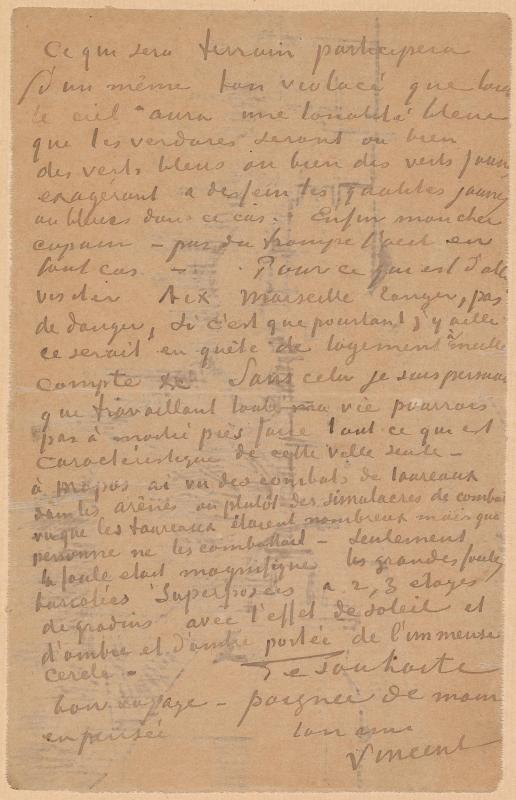 Ce qui sera terrain participera
d'un même ton violacé que tout
le ciel aura une tonalité bleue
que les verdures seront ou bien
des verts bleus ou bien des verts jaunes
exagérant a dessein les qualités jaunes
ou bleues dans ce cas. Enfin mon cher
copain – pas du trompe l'oeil en
tout cas – . Pour ce qui est d'aller
visiter Aix Marseille Tanger, pas
de danger, Si c'est que pourtant j'y aille
ce serait en quête de logement à meilleur
compte &c Sans cela je suis persuadé
que travaillant toute ma vie pourrais
pas à moitié près faire tout ce qui est
caractéristique de cette ville seule –
à propos ai vu des combats de taureaux
dans les arènes ou plutôt des simulacres de combat
vu que les taureaux étaient nombreux mais que
personne ne les combattait – seulement
la foule etait magnifique les grandes foules
bariolées Superposées a 2, 3 etages
de gradins avec l'effet de soleil et
d'ombre et d'ombre portée de l'immense
cercle –
Te souhaite
bon voyage – poignée de main
en pensée ton ami
Vincent